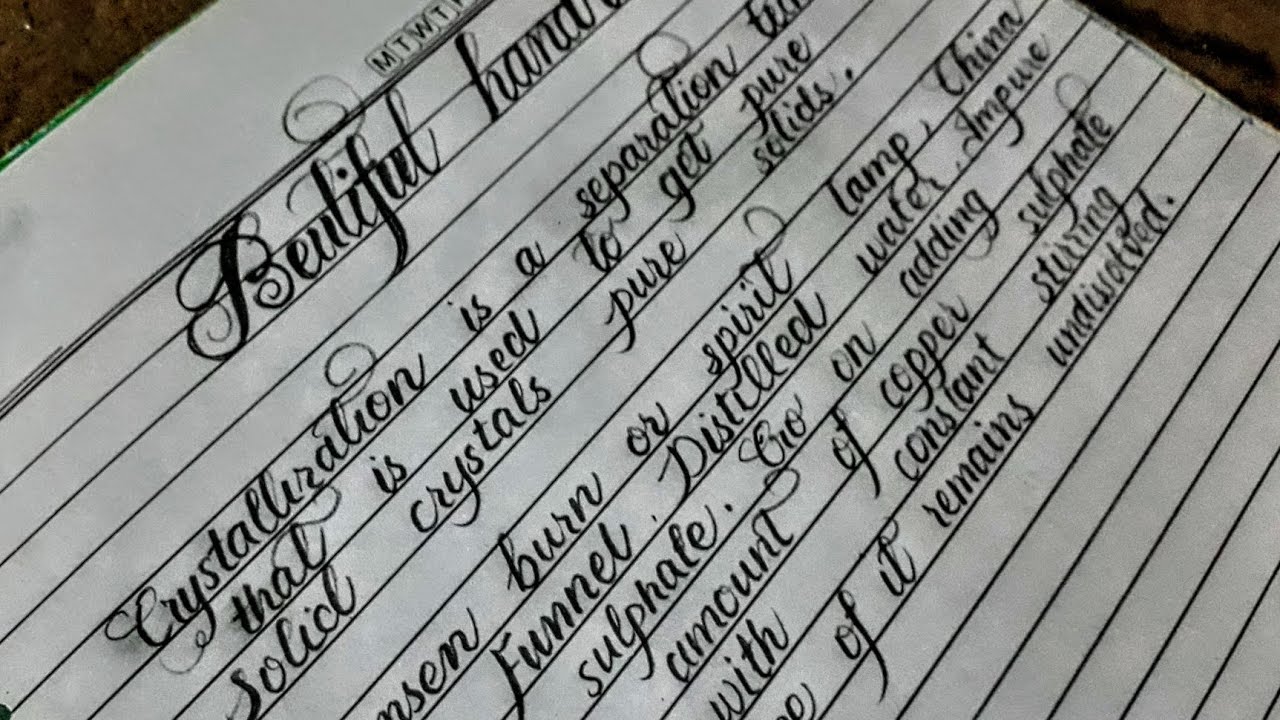 M T W T
Beutiful hand
Crystallization is a separation te
that is used to get pure
solid crystals pure solids.
nsen burn or spirit lamp, China
Funnel. Distilled water. Impure
sulphate. Go on adding
amount of copper sulphate
with constant stirring
of it remains undisolved.